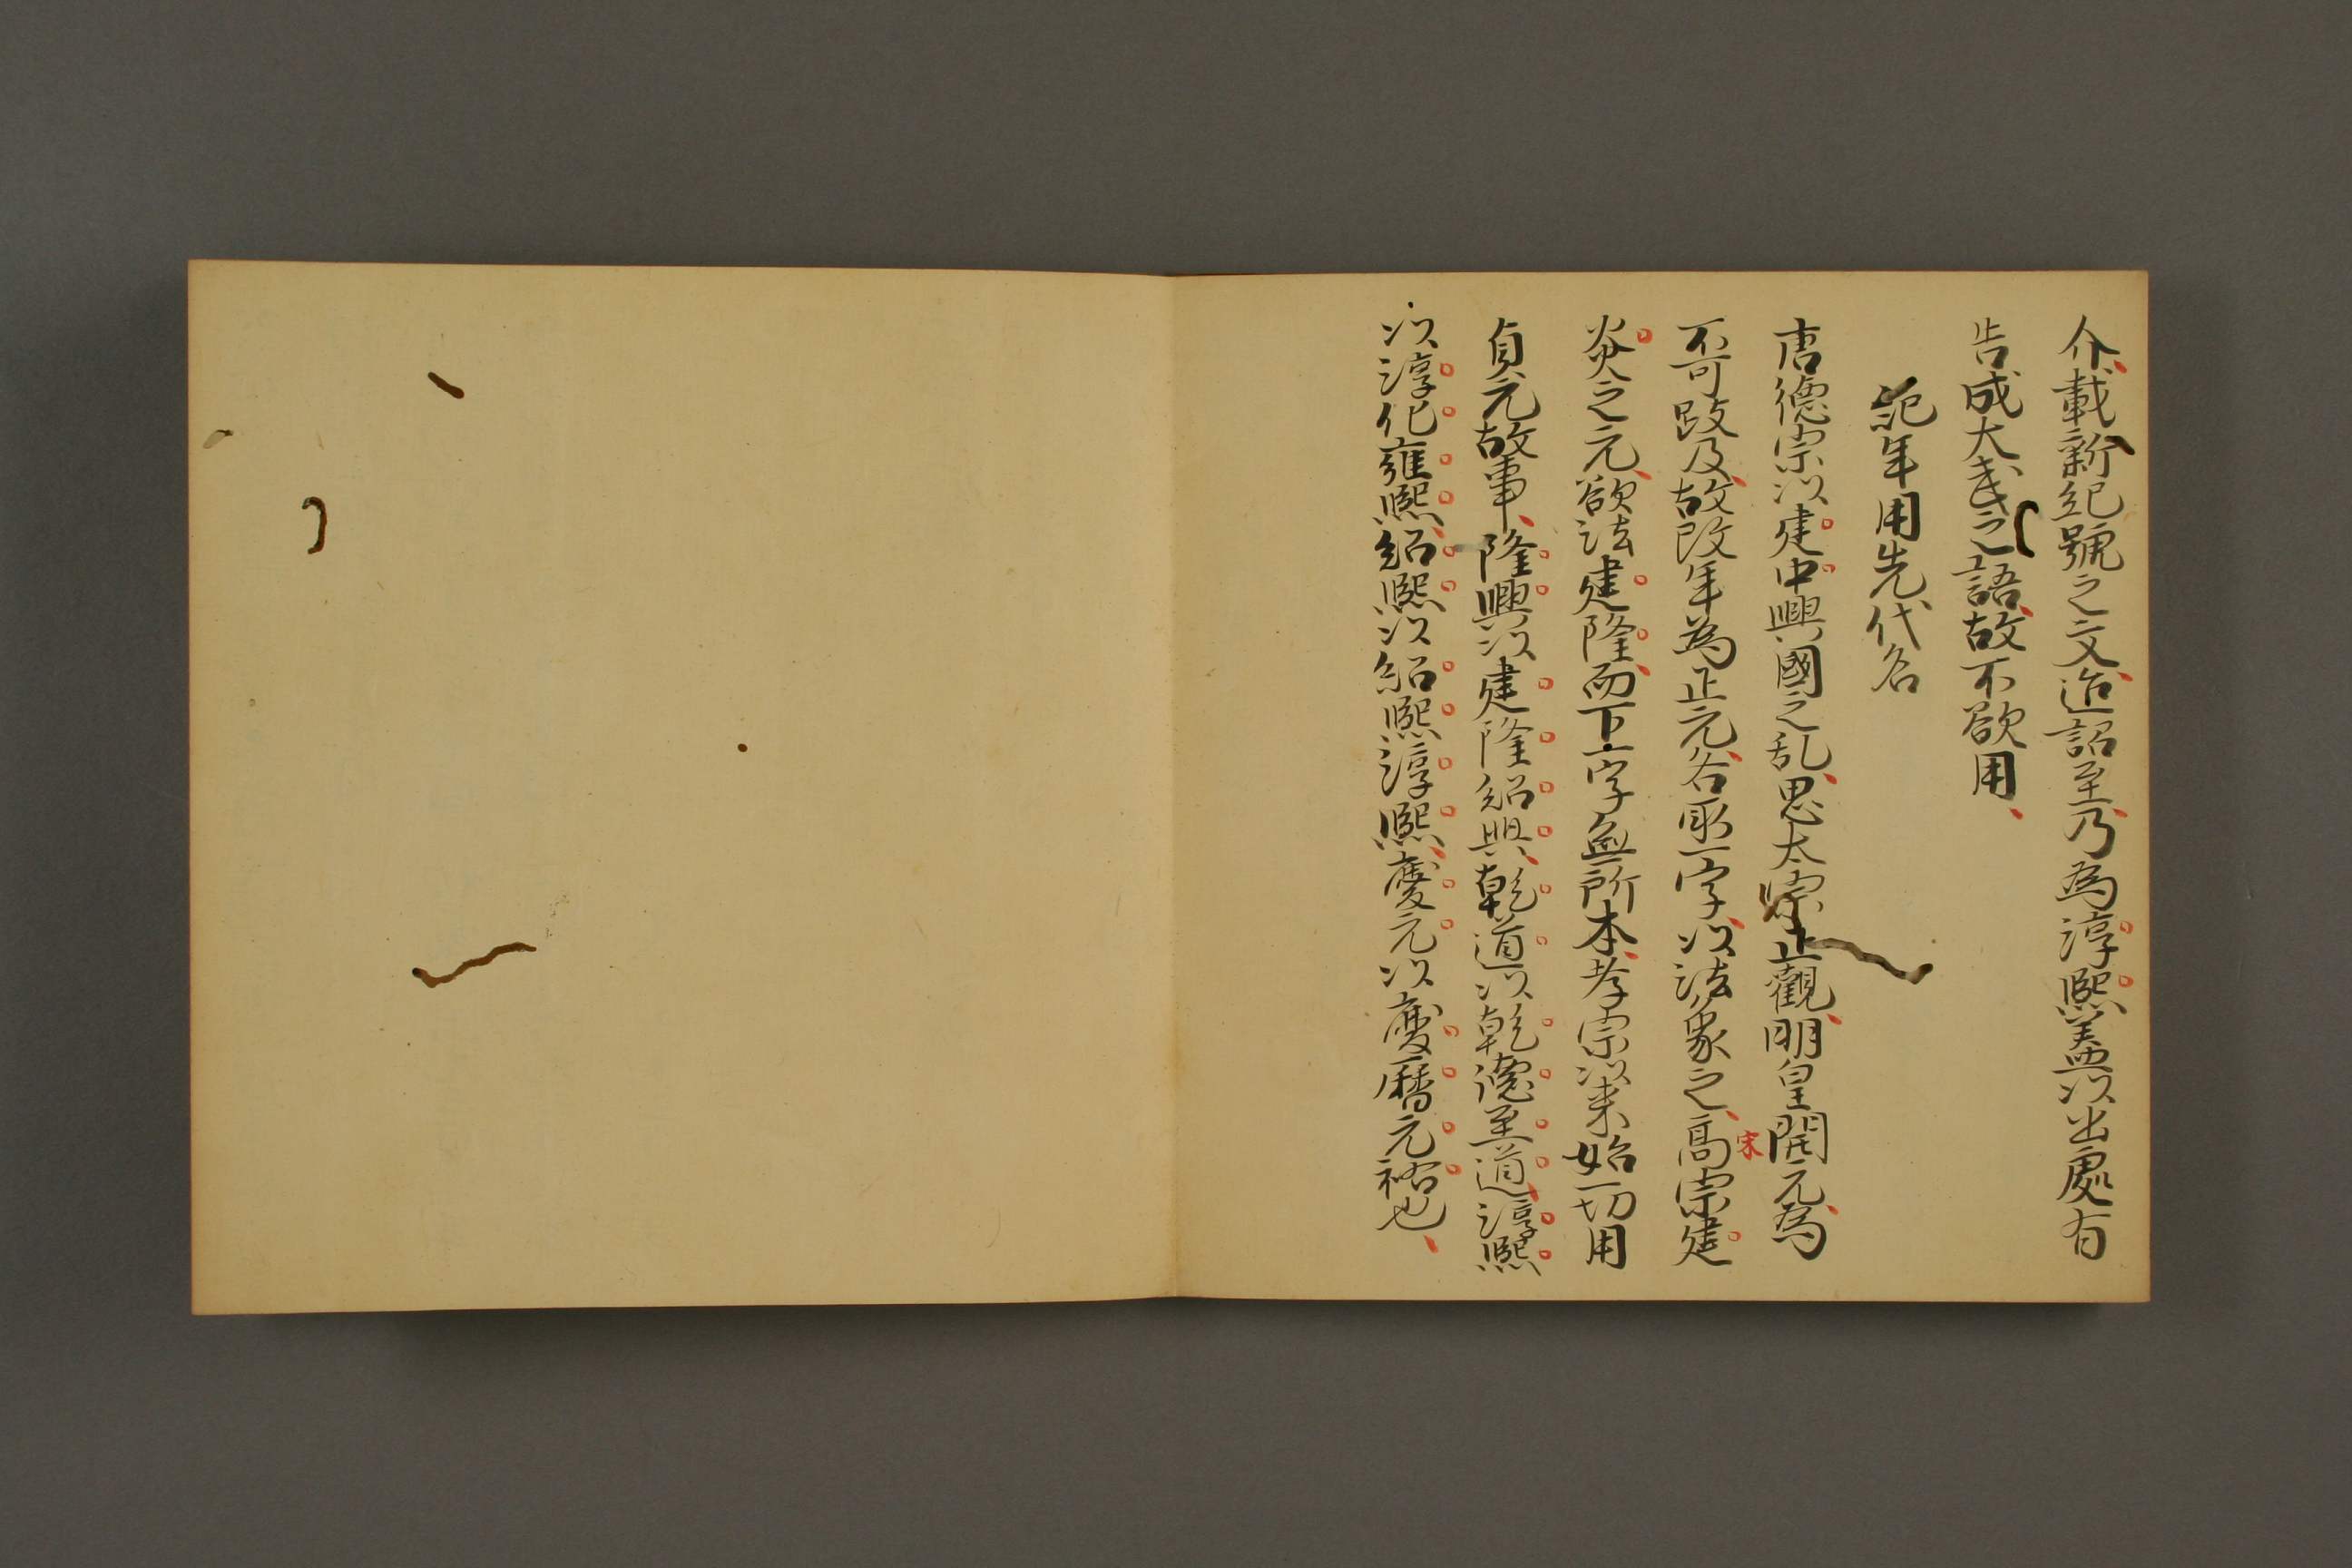 介載新紀號之文迨詔至乃為淳熙盖以出處有
告成大武之語故不欲用
紀年用先代名
唐德宗以建中興國之乱思太宗止觀明皇開元為
不可跂及故改年為止元各取一字以法象之高宗建
宋
炎之元欲法建隆而下字無所本孝宗以来始一切用
貞元故事隆興以建隆紹興乾道以乾德至道淳熙
以淳化雍熙紹熙以紹熙淳熙慶元以慶曆元祐也